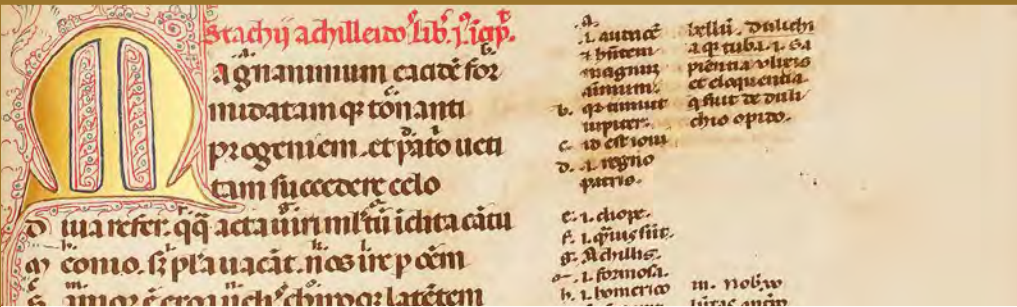 Stachij achilleido lib. j. icip.
Magnanimum eacidē for
midatam qz tonanti
progeniem. et p̄rio ueti
tam succedere celo
Diua refer. q̄q̄ acta uiri ml̄tū iclita cātu
Meonio. sʒ pl̄a uacāt. nos ire p oēm
latētem
a.
.i. autricē
⁊ hn̄tem
magnuʒ
aīmum.
b. qz timuit
iupiter.
c. id est ioui
d. .i. regno
patrio.
e. .i. cliope.
f. .i. q̄uis sūt.
g. Achillis.
.i. formosa.
h. .i. homerico
bellū. Dulichi
a qz tuba .i. sa
pientia vlixis
et eloquentia
q fuit de duli
chio opido.
m. nobʒ